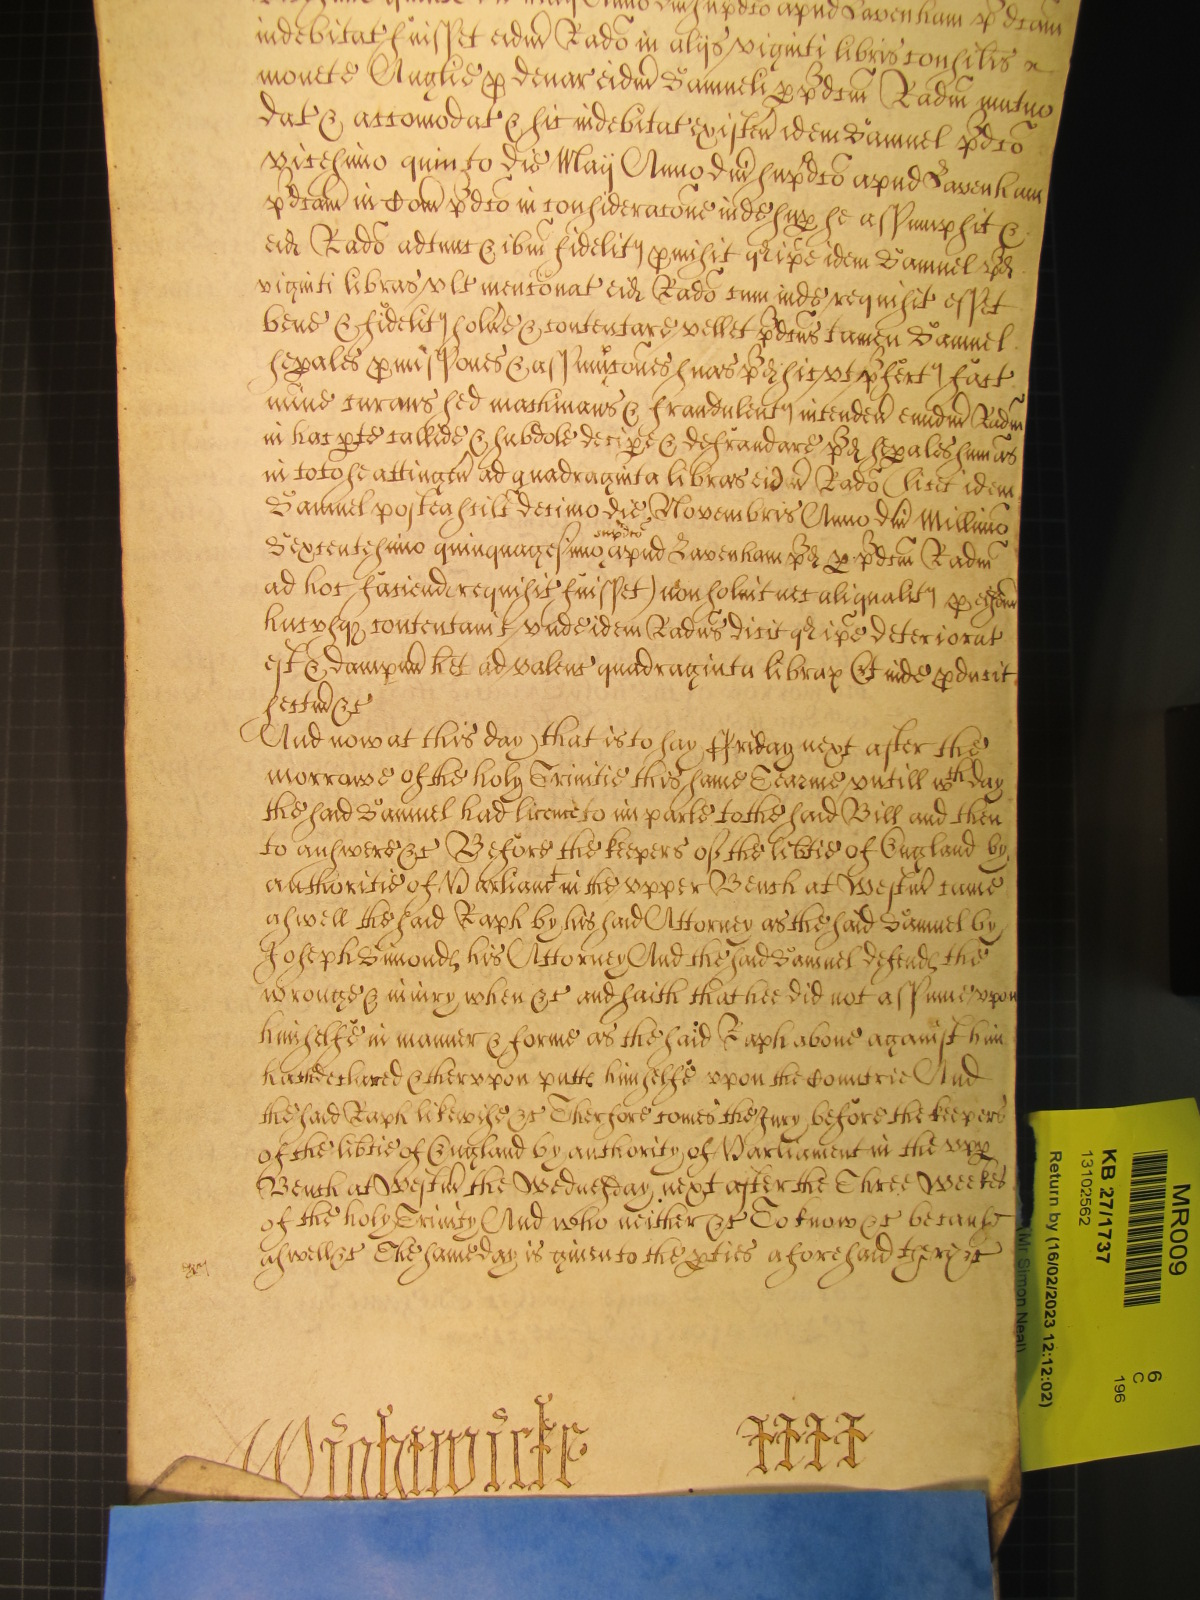 Maij Anno Dm supdco apud Lavenham pdcam
indebitat fuisset eidm Rado in alijs viginti libris consilis
monete Anglie p denar eidm Samueli p pdcm Radm mutuo
dat & accomodat & sic indebitat existen idem Samuel pdco
vicesimo quinto die Maij Anno dm supdco apud Lavenham
pdcam in Com pdco in consideracone inde sup se assumpsit &
eid Rado adtunc & ibm fidelit pmisit qd ipe idem Samuel pd
viginti libras vlt menconat eid Rado cum inde requisit esset
bene & fidelit solve & contentare vellet pdcus tamen Samuel
sepales pmissiones & assumcones suas pd sic vt pfert fact
mime curans sed machinans & fraudulent intenden eundm Radm
in hac pte callide & subdole decipe & defraudare pd sepales sumas
in toto se attingen ad quadraginta libras eidm Rado (licet idem
Samuel postea scilt decimo die Novembris Anno dm Millimo
Sexcentesimo quinquagesimo supdco apud Lavenham pd p pdcm Radm
ad hoc faciend requisit fuisset) non solvit nec aliqualit p eisdem
hucusq contentavit vnde idem Radus dicit qd ipe deteriorat
est & dampnu het ad valenc quadraginta librar Et inde pducit
sectm &c
And now at this day that is to say ffriday next after the
morrowe of the holy Trinitie this same Tearme vntill wch day
the said Samuel had licence to imparle to the said Bill and then
to answere &c Before the keepers of the libtie of England by
authoritie of Parliamt in the vpper Bench at Westm came
aswell the said Raph by his said Attorney as the said Samuel by
Joseph Simonds his Attorney And the said Samuel defends the
wronge & iniury when &c and saith that hee did not assume vpon
himselfe in manner & forme as the said Raph above against him
hath declared & thervpon putts himselfe vpon the Countrie And
the said Raph likewise &c Therfore comes the Jury before the keepers
of the libtie of England by authority of Parliament in the vpp
Bench at Westm the Wednesday next after the Three Weekes
of the holy Trinity And who neither &c To know &c because
aswell &c The same day is given to the pties aforesaid there &c
Wightwicke
MR009
KB 27/1737
13102562
6
C
196
Return by (16/02/2023 12:12:02)
(Mr Simon Neal)